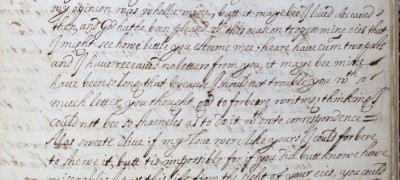 my opinion was wholie mine, butt it maye bee I lived deceaved
then, and God hathe ben pleased wth this ocasion to open mine eies that
I might see howe little you esteeme mee, heare have cum two posts
and I have receaved no letters from you, it maye bee mine
have been so long that because I should not trouble you wth so
much letter you thought good to forbeare writing thinking I
could not bee so shameles as to doe it wthoute correspondence
Alas sweete Olive if my Love were like yours I could forbere
to shewe it, butt tis impossible for if you did butt knowe howe
this from the sight of your eies, you could